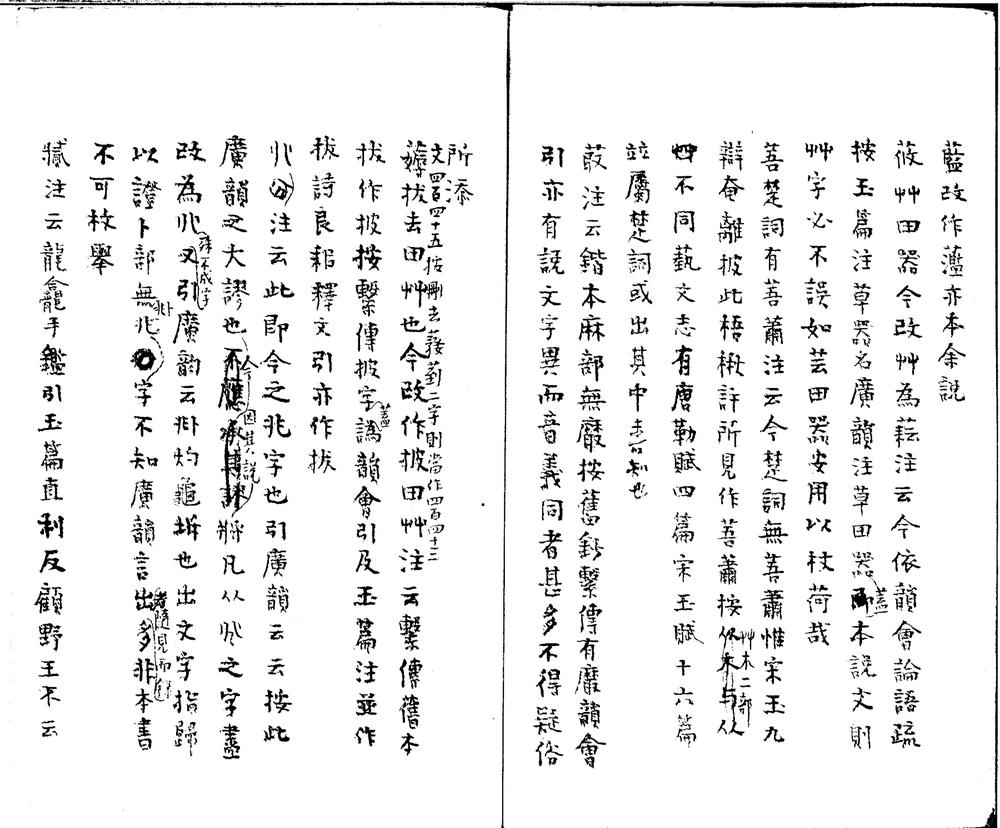 藍改作藘亦本余說
莜艸田器今改艸為耘注云今依韻會論語疏
按玉篇注草器名廣韻注草田器蓋本說文則
艸字必不誤如芸田器安用以杖荷哉
菩楚詞有菩蕭注云今楚詞無菩蕭惟宋玉九
辯奄離披此梧楸許所見作菩蕭按艸木二部
四不同藝文志有唐勒賦四篇宋玉賦十六篇
竝屬楚詞或出其中未可知也
菆注云鍇本麻部無黀按舊鈔繫傳有黀韻會
引亦有說文字異而音義同者甚多不得疑俗
所添
文四百四十五按刪去蓩萄二字則當作四百四十三
薅拔去田艸也今改作披田艸注云繫傳舊本
拔作披按繫傳披字蓋譌韻會引及玉篇注並作
拔詩良耜釋文引亦作拔
八分注云此即今之兆字也引廣韻云云按此
廣韻之大謬也今因其說將凡从兆之字盡
改為𠔁又引廣韵云𠧞灼龜坼也出文字指歸
以證卜部無𠧞兆字不知廣韻言出者隨見而多非本書
不可枚舉
犙注云龍龕手鑑引玉篇直利反顧野王不云